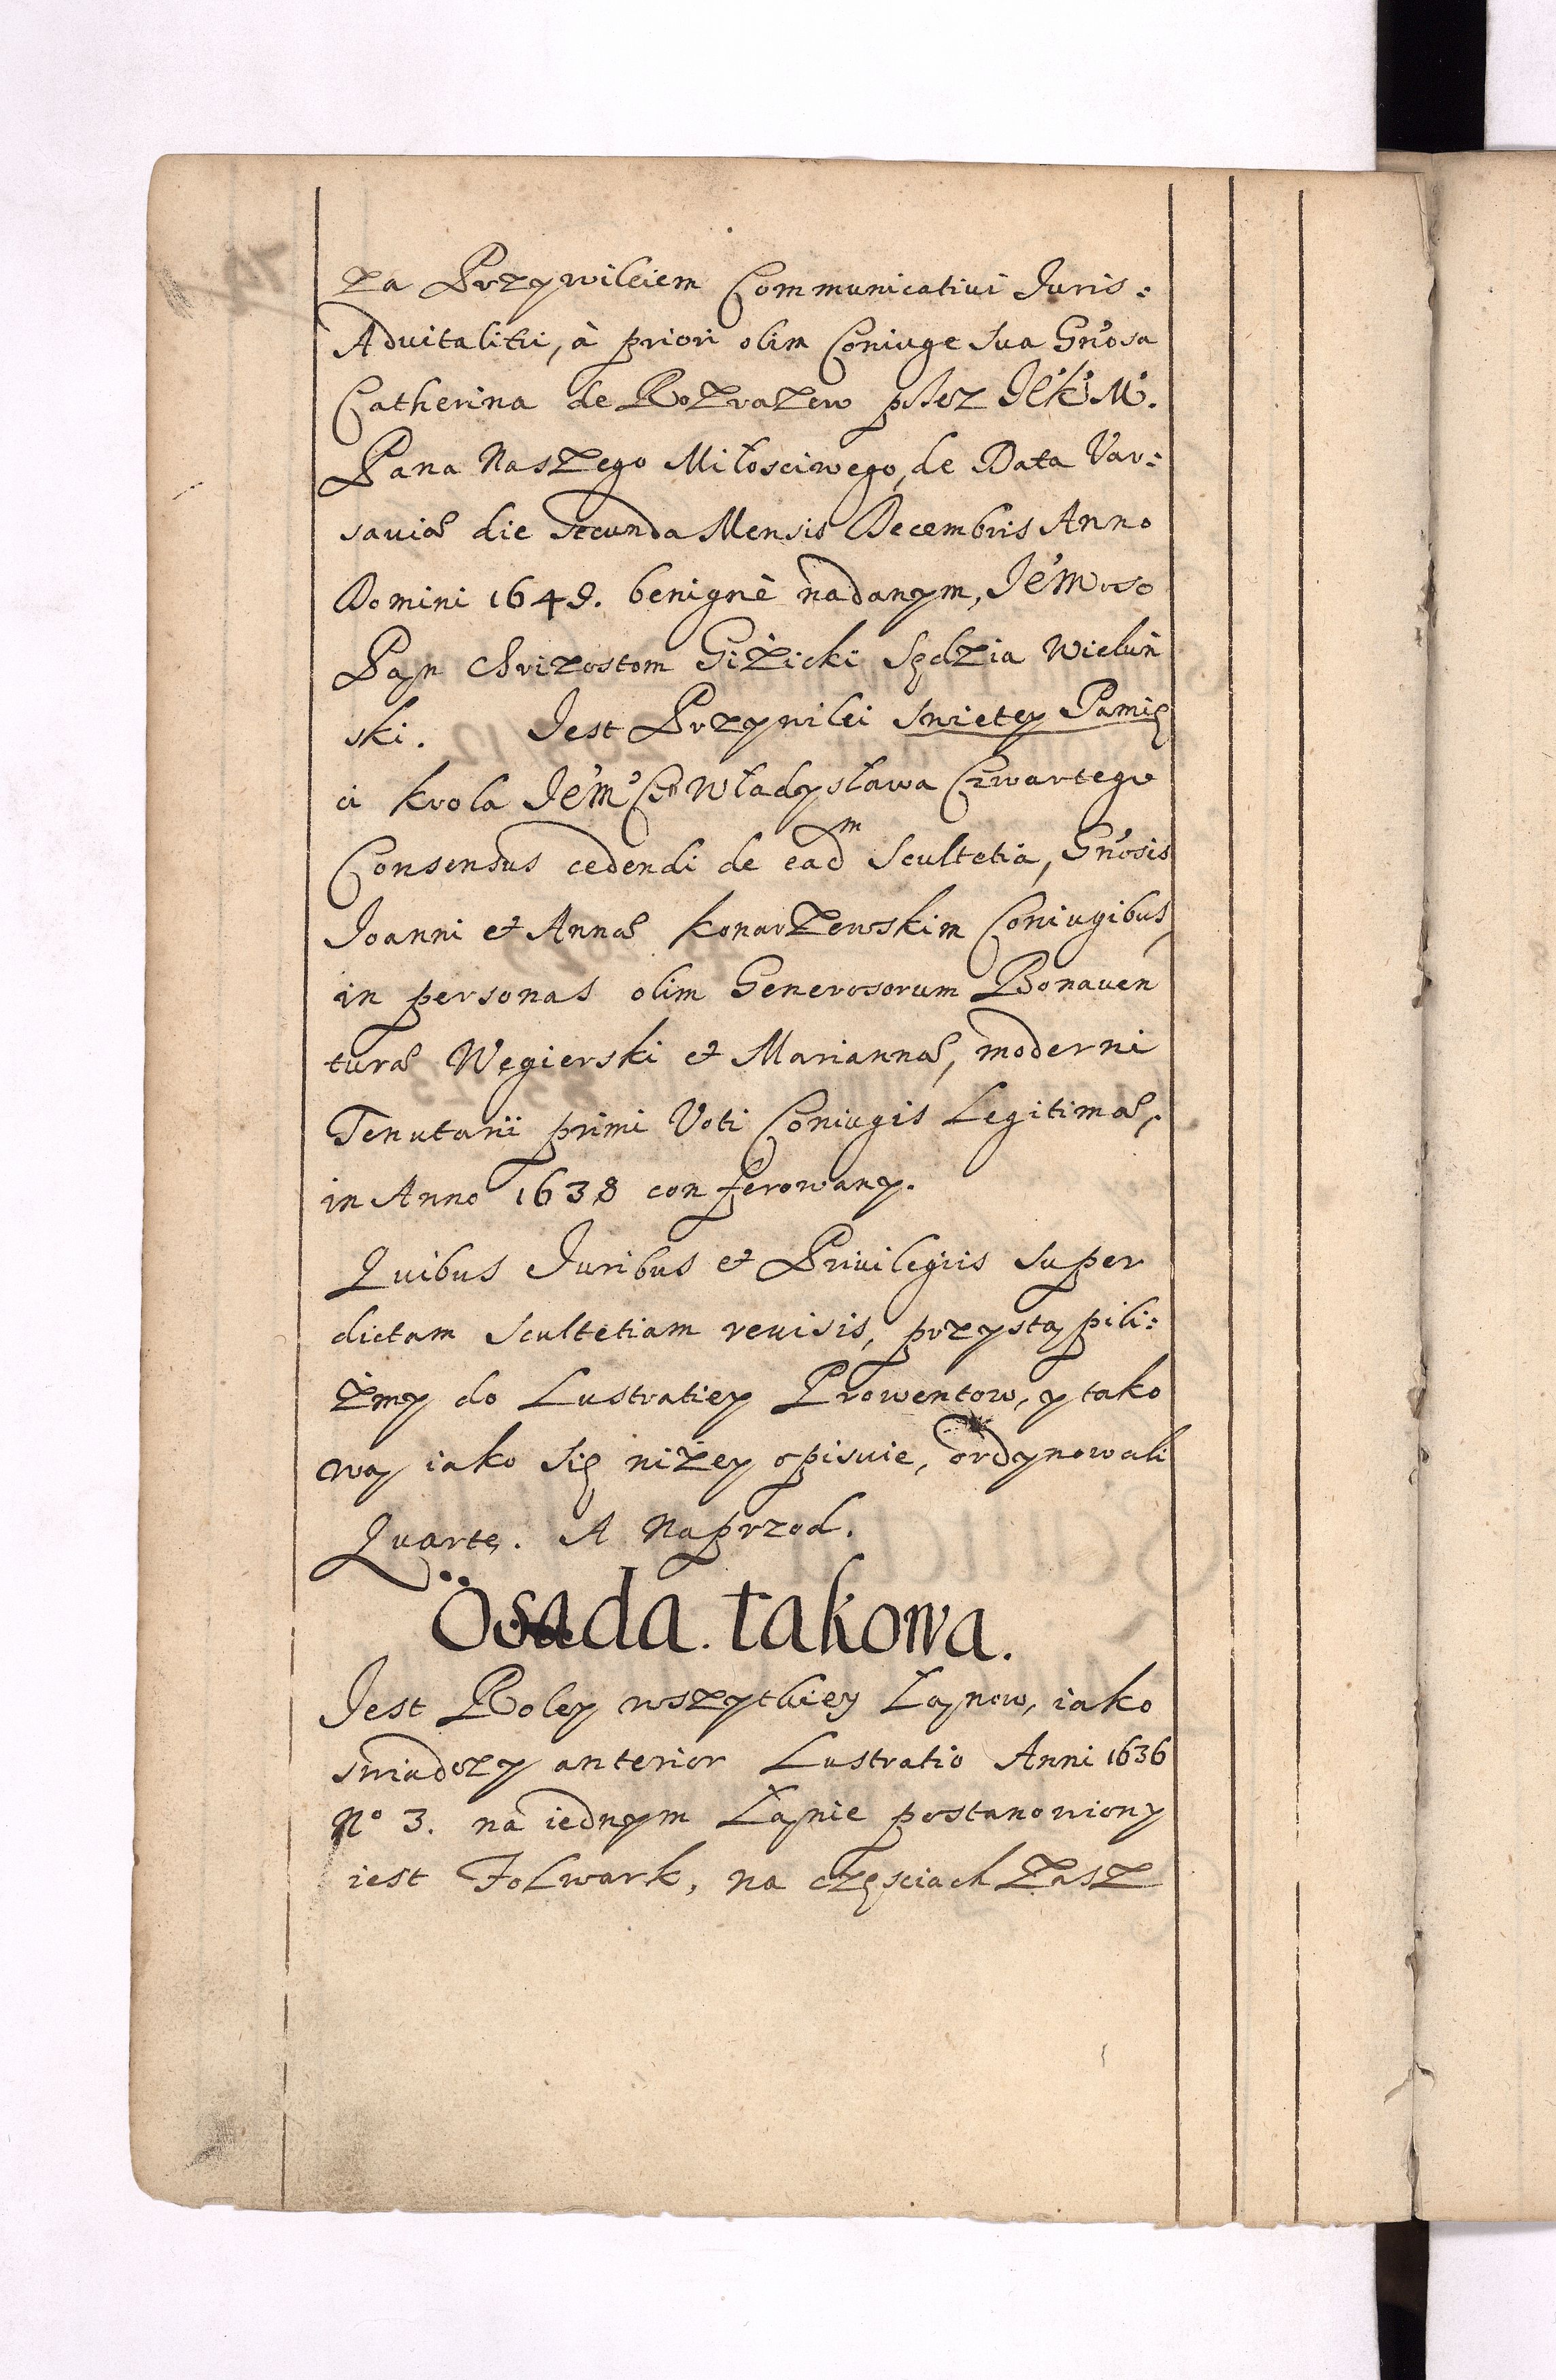 za Przywileiem Communicatiui Juris:
Aduitalitii, à priori olim Coniuge sua Gn'osa
Catherina de Rozrazew przez JE'K'M'.
Pana Naszego Miłosciwego, de Data Var:
sauiæ die secunda Mensis Decembris Anno
Domini 1649. benignè nadanym, JE'M oso
Pan Chrizostom Giżicki Sędzia Wieluń
ski. Jest Przywilei swietey Pamię
ci Krola JE'M'Ci Władysława Czwartego
Consensus cedendi de ead^m Scultetia, Gn'osis
Joanni et Annæ Konarzewskim Coniugibus,
in personas olim Generosorum Bonauen
turæ Węgierski et Mariannæ, moderni
Tenutarii primi Voti Coniugis Legitimæ,
in Anno 1638 conferowany.
Quibus Juribus et Priuilegiis super
dictam Scultetiam reuisis, przystąpili:
żmy do Lustratiey Prowentow, y tako
wą iako się niżey opisuie, ordynowali
Quartę. A Naprzod.
Osada takowa.
Jest Roley wszytkiey Łanow, iako
swiadczy anterior Lustratio Anni 1636
Nº 3. na iednym Łanie postanowiony
iest Folwark, na częsciach zasz